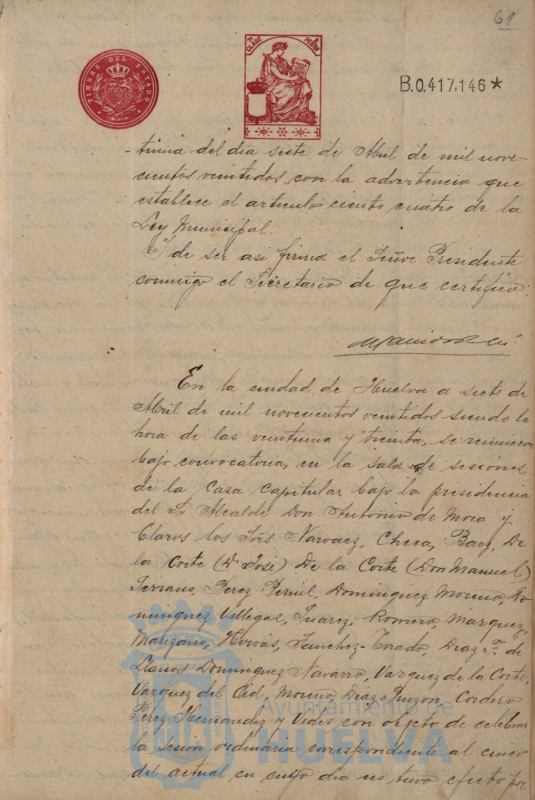 61
TIMBRE DEL ESTADO
B.0.417.146*
tima del dia siete de Abril de mil nove-
cientos veintidos, con la advertencia que
establece el articulo ciento cuatro de la
Ley Municipal.
Y de ser asi firma el Señor Presidente
conmigo el Secretario de que certifico:
En la ciudad de Huelva a siete de
Abril de mil novecientos veintidos siendo la
hora de las veintiuna y treinta, se reunieron
bajo convocatoria, en la sala de sesiones
de la Casa Capitular bajo la presidencia
del Sr Alcalde Don Antonio de Mora y
Claros los Srs Narvaez, Checa, Baez, De
la Corte (Dn José) De la Corte (Don Manuel)
Serrano, Perez Bernil, Dominguez Moreno, Do-
minguez Villegas, Suarez, Romero, Marquez,
Manzano, Sanchez-Tirado, Diaz F. de
Llanos Dominguez Navarro, Vazquez de la Corte,
Vazquez del Cid, Moreno, Diaz Cordero
Perez Hernandez y Vides con objeto de celebrar
la sesion ordinaria correspondiente al cinco
del actual en cuyo dia no tuvo efecto por
Ayuntamiento de
HUELVA